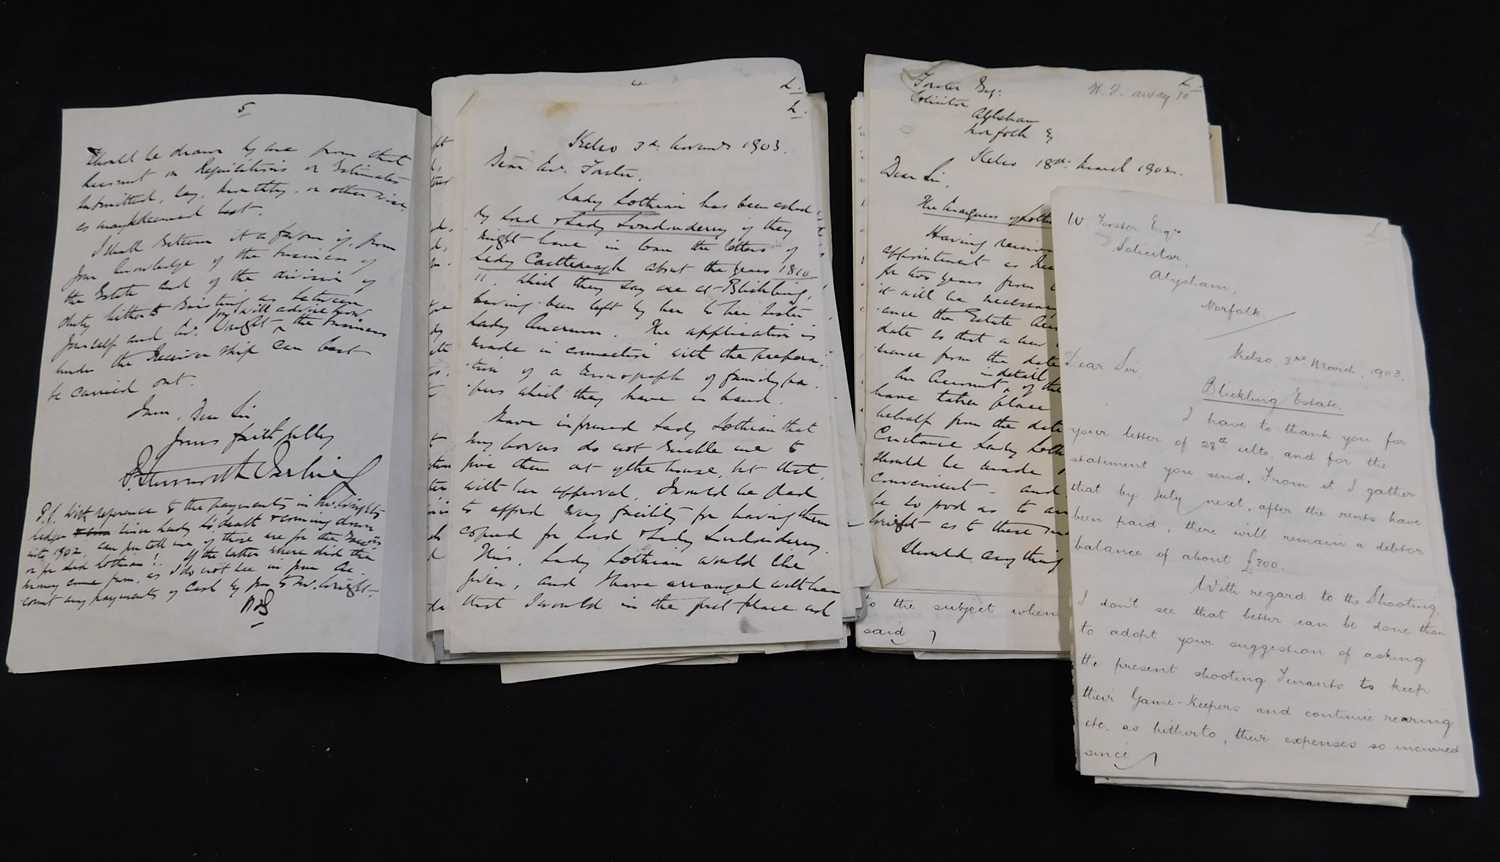 5
should be drawn by me from that
account on Requisitions or Estimates
submitted, say, monthly, or otherwise,
as may seem best.
I shall esteem it a favour if, from
your knowledge of the business of
the Estate and of the division of
duty hitherto existing as between
yourself and Mr. Wright, you will advise how
the business
under the Receivership can best
be carried out.
I am, Dear Sir
Yours faithfully
P.S. With reference to the payments in Mr. Wright's
ledger since Lady L's death & coming down
into 1902, can you tell me if these are for the
or for Lady Lothian? If the latter where did the
money come from, as I do not see in your Ac-
count any payments of Cash by you to Mr. Wright.
L.
L.
Kelso 3rd 1903.
Dear Mr. Forster,
Lady Lothian has been asked
by Lord & Lady Londonderry if they
might have in loan the letters of
Lady Castlereagh about the years 1810
11, which they say are at Blickling,
having been left by her to her sister
Lady Ancram. The application is
made in connection with the prepara-
tion of a monograph of family pa-
pers which they have in hand.
I have informed Lady Lothian that
my powers do not enable me to
give them out of the house, but that,
with her approval, I would be glad
to afford every facility for having them
copied for Lord & Lady Londonderry.
This, Lady Lothian would like
given, and I have arranged with her
that I would in the first place ask
L
W. F. away 10
Forster Esq.
Solicitor
Aylsham
Norfolk
Kelso 18th March 1902.
Dear Sir,
The Marquess of Loth
Having receiv
appointment as Rec
for two years from
it will be necessar
ance the Estate
date so that a new
nance from the date
in detail
An Account of the
have taken place
behalf from the date
Constance Lady Loth
should be made
convenient - and
be so good as to
Wright as to these
Should anything
to the subject when
said
L
W Forster Esqr
Solicitor,
Aylsham,
Norfolk
Kelso, 3rd March, 1903.
Dear Sir,
Blickling Estate.
I have to thank you for
your letter of 28th ulto, and for the
statement you send. From it I gather
that by July next, after the rents have
been paid, there will remain a debtor
balance of about £300.
With regard to the Shooting,
I don't see that better can be done than
to adopt your suggestion of asking
the present shooting Tenants to keep
their Game-Keepers and continue rearing
etc. as hitherto, their expenses so incurred
since